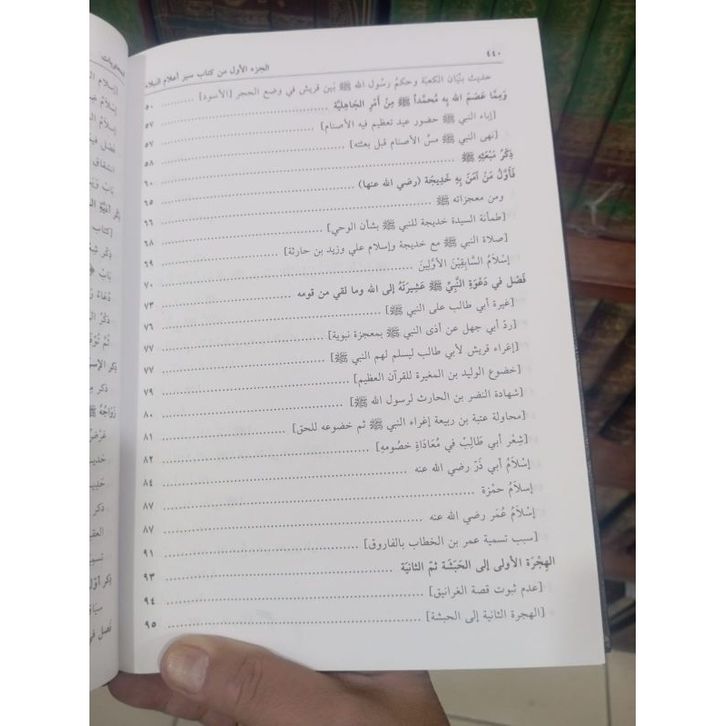 ٤٤٠
الجزء الأول من كتاب سير أعلام النبلاء
حديث بنْيَان الكعبَة وحكمُ رسُول الله ﷺ بَين قريش في وضع الحجر [الأسود] ٥٠
وَمِمَّا عَصَمَ الله بِه مُحَمَّداً ﷺ مِنْ أَمْرِ الجَاهليَّة ٥٧
[إباء النبي ﷺ حضور عيد تعظيم فيه الأصنام] ٥٧
[نهى النبي ﷺ مسَّ الأصنام قبل بعثته] ٥٨
ذِكرُ مَبْعَثِهِ ﷺ ٦٠
فَأَوَّلُ مَنْ آمَنَ بِه خَدِيجَة (رضي الله عنها) ٦٥
ومن معجزاته ﷺ ٦٦
[طمأنة السيدة خديجة للنبي ﷺ بشأن الوحي] ٦٨
[صلاة النبي ﷺ مع خديجة وإسلام علي وزيد بن حارثة] ٦٩
إسْلَامُ السَّابِقِيْنَ الأوَّلِينَ ٧٠
فَصْل في دَعْوَةِ النَّبيِّ ﷺ عَشِيرَتَهُ إلى الله وما لقي من قومه ٧٣
[غيرة أبي طالب على النبي ﷺ] ٧٦
[ردّ أبي جهل عن أذى النبي ﷺ بمعجزة نبوية] ٧٧
[إغراء قريش لأبي طالب ليسلم لهم النبي ﷺ] ٧٧
[خضوع الوليد بن المغيرة للقرآن العظيم] ٧٩
[شهادة النضر بن الحارث لرسول الله ﷺ] ٨٠
[محاولة عتبة بن ربيعة إغراء النبي ﷺ ثم خضوعه للحق] ٨١
[شِعْر أبي طَالِبْ في مُعَادَاةِ خصُومِهِ] ٨٢
إسْلَامُ أبي ذَرّ رضي الله عنه ٨٤
إسلَامُ حمْزَة ٨٧
إسْلَامُ عُمَر رضي الله عنه ٨٧
[سبب تسمية عمر بن الخطاب بالفاروق] ٩١
الهِجْرَة الأولى إلى الحَبَشَة ثمّ الثانيَة ٩٣
[عدم ثبوت قصة الغرانيق] ٩٤
[الهجرة الثانية إلى الحبشة] ٩٥